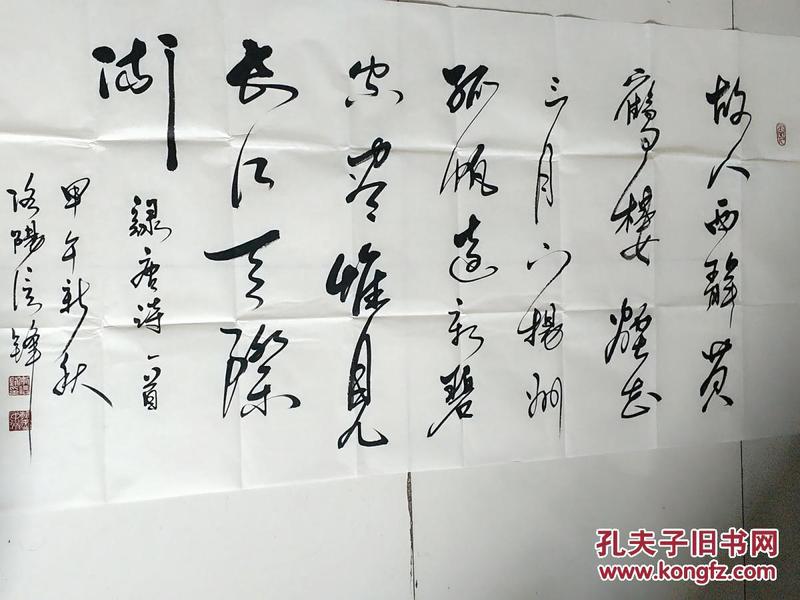 故人西辞黄
鹤楼烟花
三月下揚州
孤帆遠影碧
空尽惟見
长江天際
流
録唐诗一首
甲午新秋
洛陽信鋒
孔夫子旧书网
www.kongfz.com